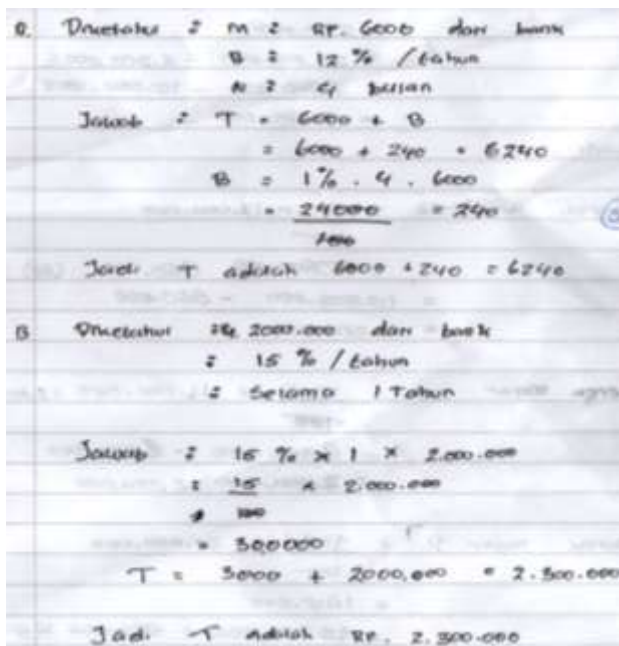 a. Diketahui : M : RP. 6000 dari bank
B : 12 % / tahun
N : 4 bulan
Jawab : T = 6000 + B
= 6000 + 240 = 6240
B = 1% . 4 . 6000
= 24000 / 100 = 240
Jadi T adalah 6000 + 240 = 6240
B Diketahui : 2000.000 dari bank
: 15 % / tahun
: Selama 1 Tahun
Jawab : 15 % × 1 × 2.000.000
= 15 / 100 × 2.000.000
= 300000
T = 3000 + 2000.000 = 2.300.000
Jadi T adalah RP. 2.300.000